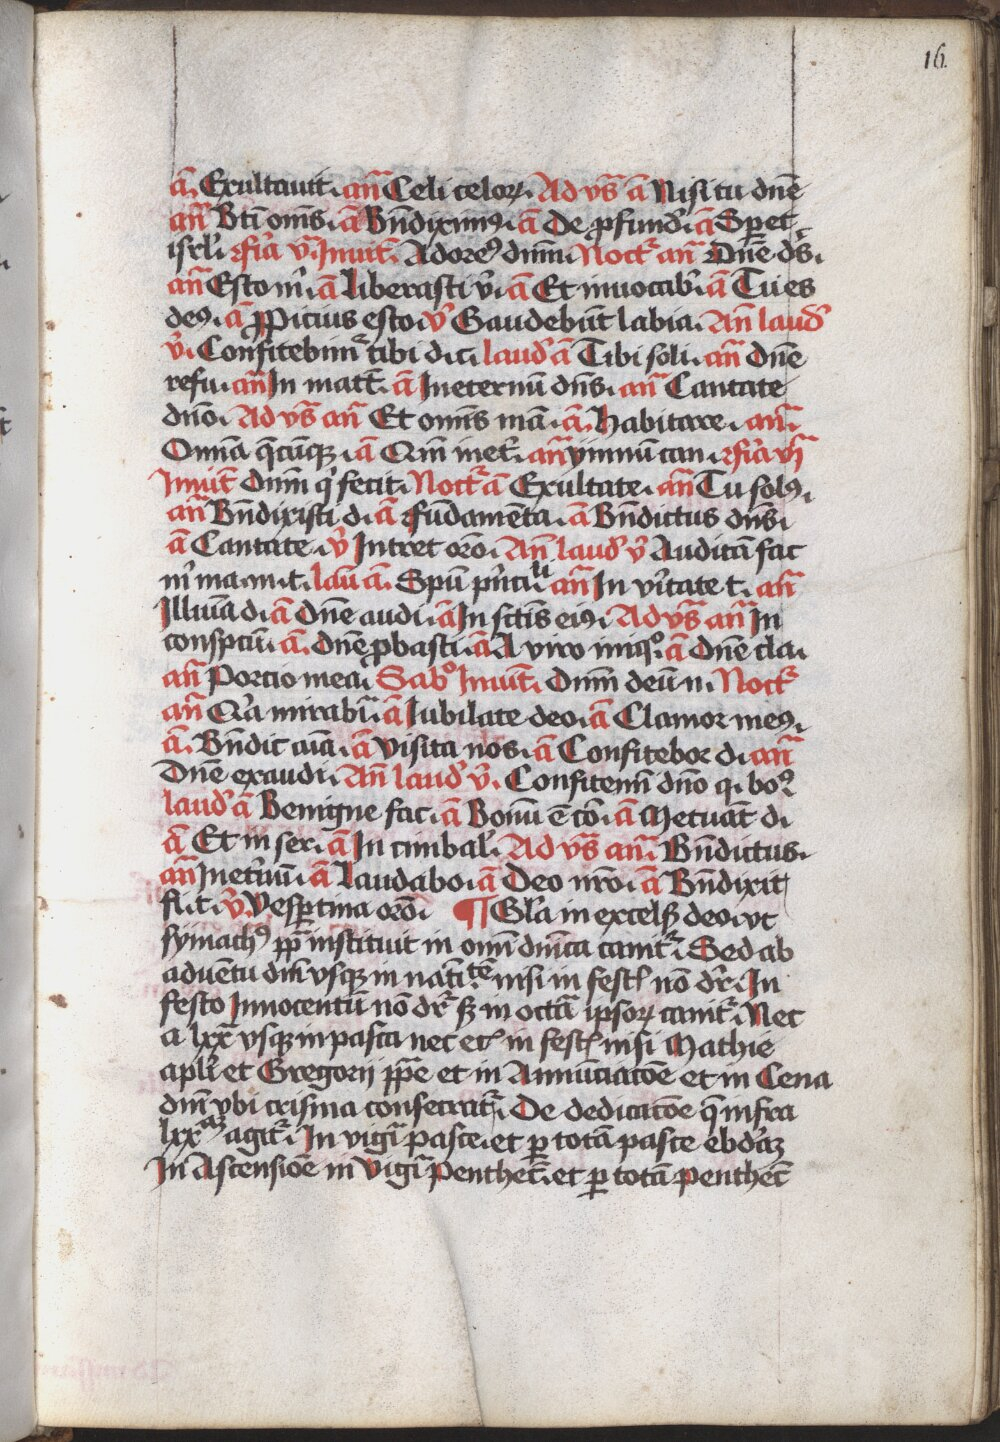 16.
a̅. Exultauit. an̅ Celi celoꝝ. Ad vs̅ a̅ Nisi tu dn̅e
an̅ Bt̅i om̅s. a̅ Bn̅diximꝰ. a̅ De ꝓfund'. a̅ Speret
isrl'. rfi'a vi̅ Inuit̅. Adoreꝰ dnm̅. Noct' an̅ Dn̅e ds̅.
an̅ Esto m'. a̅ Liberasti v'. a̅ Et inuocab'. a̅ Tu es
deꝰ. a̅ Ꝓpicius esto. v' Gaudebu̅t labia. An̅ laud'
v'. Confitebim' tibi d. t. laud' a̅ Tibi soli. an̅ Dn̅e
refu. an̅ In matt̅. a̅ In eternu̅ dn̅s. an̅ Cantate
dn̅o. Ad vs̅ an̅ Et omn̅s ma̅. a̅. Habitare. an̅.
Omn̅a q̅cu̅qꝫ. a̅ Qm̅ in et'. an̅ ymnu̅ can. rfi'a vi̅
Inuit̅ Dnm̅ q' fecit. Noct' a̅ Exultate. an̅ Tu solꝰ.
an̅ Bn̅dixisti. d. a̅ fu̅dame̅ta. a̅ Bn̅dictus dn̅s.
a̅ Cantate. v' Intret oro̅. An̅ laud' v' Audita̅ fac
m' ma. m. t. lau̅ a̅. Spu̅ pn'cili an̅ In v'itate t. an̅
Illui̅a d. a̅ Dn̅e audi. a̅ In sctis̅ eiꝰ. Ad vs̅ an̅ In
conspctu̅. a̅. Dn̅e ꝓbasti. a̅ A viro iniqº. a̅ Dn̅e cla.
an̅ Portio mea. Sabº Inuit̅. Dnm̅ deu̅ n. Noct'
an̅ Q'a mirabi̅. a̅ Iubilate deo. a̅ Clamor meꝰ.
a̅. Bn̅dic ai̅a. a̅ Visita nos. a̅ Confitebor d. an̅
Dn̅e exaudi. An̅ laud' v'. Confitemi̅ dn̅o q. boꝰ
laud' a̅ Benigne fac. a̅ Bonu̅ e̅ co̅. a̅ Metuat̅ d.
a̅ Et in ser. a̅ In cimbal'. Ad vs̅ an̅. Bn̅dictus.
an̅ In et'nu̅. a̅ Laudabo. a̅ Deo nr̅o. a̅ Bn̅dixit
fi. t. v'. Vesp̲tina oro̅. ¶ Gl'a in excelsꝫ deo. vt
symachꝰ pp̅ instituit in omi̅ dni̅ca canit'. Sed ab
adue̅tu dni̅ vsqꝫ in nati̅te̅ nisi in fest' no̅ dr'. In
festo Innocentu̅ no̅ dr' sꝫ in octa̅ ipsoꝝ canit'. Nec
a lxx̅ vsqꝫ in pasca nec et' in fest' nisi Mathie
apl'i et Gregorij pp̅e et in Annu̅ciaco̅e et in Cena
dni̅ vbi crisma consecrat'. De dedicaco̅e q̅ infra
lxxᵃꝫ agit'. In vigi̅ pasce. et p̲ tota̅ pasce ebd'aꝫ
In Ascensio̅e in vigi̅ Penthec̅. et p̲ tota̅ penthec̅